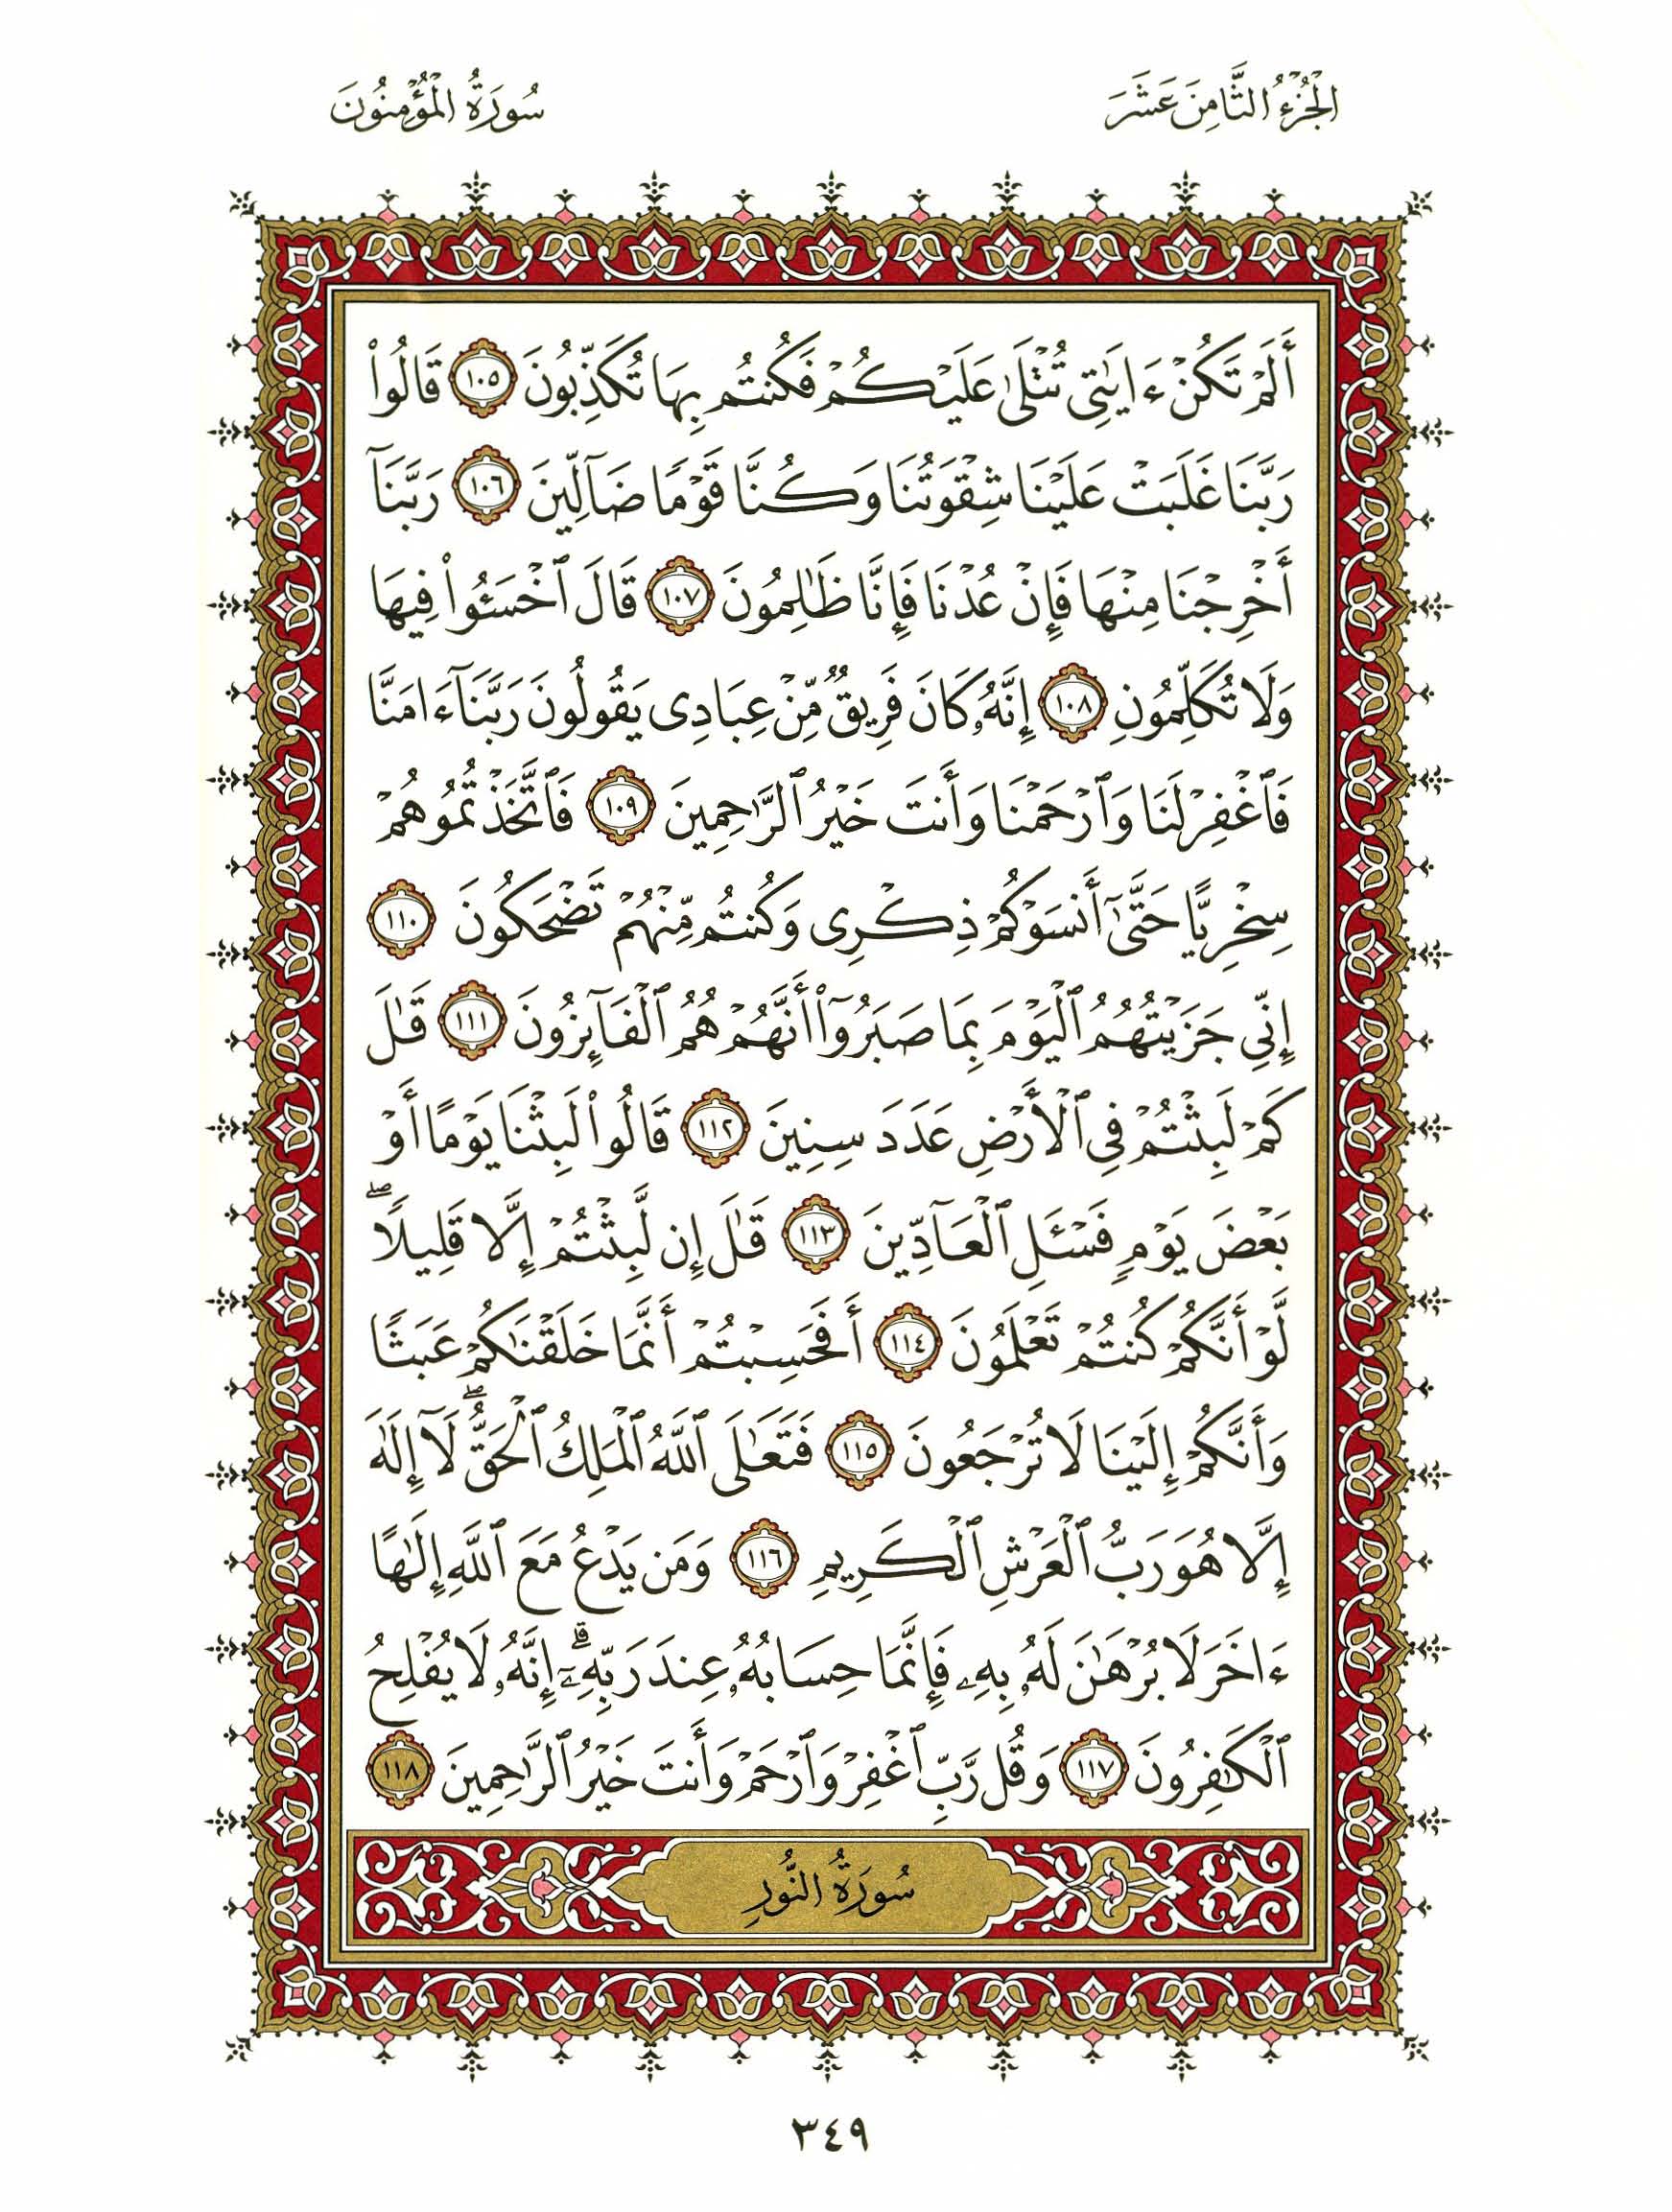 الجُزْءُ الثَّامِنَ عَشَرَ
سُورَةُ الْمُؤْمِنُونَ
أَلَمْ تَكُنْ ءَايَٰتِى تُتْلَىٰ عَلَيْكُمْ فَكُنتُم بِهَا تُكَذِّبُونَ ١٠٥ قَالُوا۟
رَبَّنَا غَلَبَتْ عَلَيْنَا شِقْوَتُنَا وَكُنَّا قَوْمًا ضَآلِّينَ ١٠٦ رَبَّنَآ
أَخْرِجْنَا مِنْهَا فَإِنْ عُدْنَا فَإِنَّا ظَٰلِمُونَ ١٠٧ قَالَ ٱخْسَـُٔوا۟ فِيهَا
وَلَا تُكَلِّمُونِ ١٠٨ إِنَّهُۥ كَانَ فَرِيقٌ مِّنْ عِبَادِى يَقُولُونَ رَبَّنَآ ءَامَنَّا
فَٱغْفِرْ لَنَا وَٱرْحَمْنَا وَأَنتَ خَيْرُ ٱلرَّٰحِمِينَ ١٠٩ فَٱتَّخَذْتُمُوهُمْ
سِخْرِيًّا حَتَّىٰٓ أَنسَوْكُمْ ذِكْرِى وَكُنتُم مِّنْهُمْ تَضْحَكُونَ ١١٠
إِنِّى جَزَيْتُهُمُ ٱلْيَوْمَ بِمَا صَبَرُوٓا۟ أَنَّهُمْ هُمُ ٱلْفَآئِزُونَ ١١١ قَٰلَ
كَمْ لَبِثْتُمْ فِى ٱلْأَرْضِ عَدَدَ سِنِينَ ١١٢ قَالُوا۟ لَبِثْنَا يَوْمًا أَوْ
بَعْضَ يَوْمٍ فَسْـَٔلِ ٱلْعَآدِّينَ ١١٣ قَٰلَ إِن لَّبِثْتُمْ إِلَّا قَلِيلًا ۖ
لَّوْ أَنَّكُمْ كُنتُمْ تَعْلَمُونَ ١١٤ أَفَحَسِبْتُمْ أَنَّمَا خَلَقْنَٰكُمْ عَبَثًا
وَأَنَّكُمْ إِلَيْنَا لَا تُرْجَعُونَ ١١٥ فَتَعَٰلَى ٱللَّهُ ٱلْمَلِكُ ٱلْحَقُّ ۖ لَآ إِلَٰهَ
إِلَّا هُوَ رَبُّ ٱلْعَرْشِ ٱلْكَرِيمِ ١١٦ وَمَن يَدْعُ مَعَ ٱللَّهِ إِلَٰهًا
ءَاخَرَ لَا بُرْهَٰنَ لَهُۥ بِهِۦ فَإِنَّمَا حِسَابُهُۥ عِندَ رَبِّهِۦٓ ۚ إِنَّهُۥ لَا يُفْلِحُ
ٱلْكَٰفِرُونَ ١١٧ وَقُل رَّبِّ ٱغْفِرْ وَٱرْحَمْ وَأَنتَ خَيْرُ ٱلرَّٰحِمِينَ ١١٨
سُورَةُ النُّورِ
٣٤٩